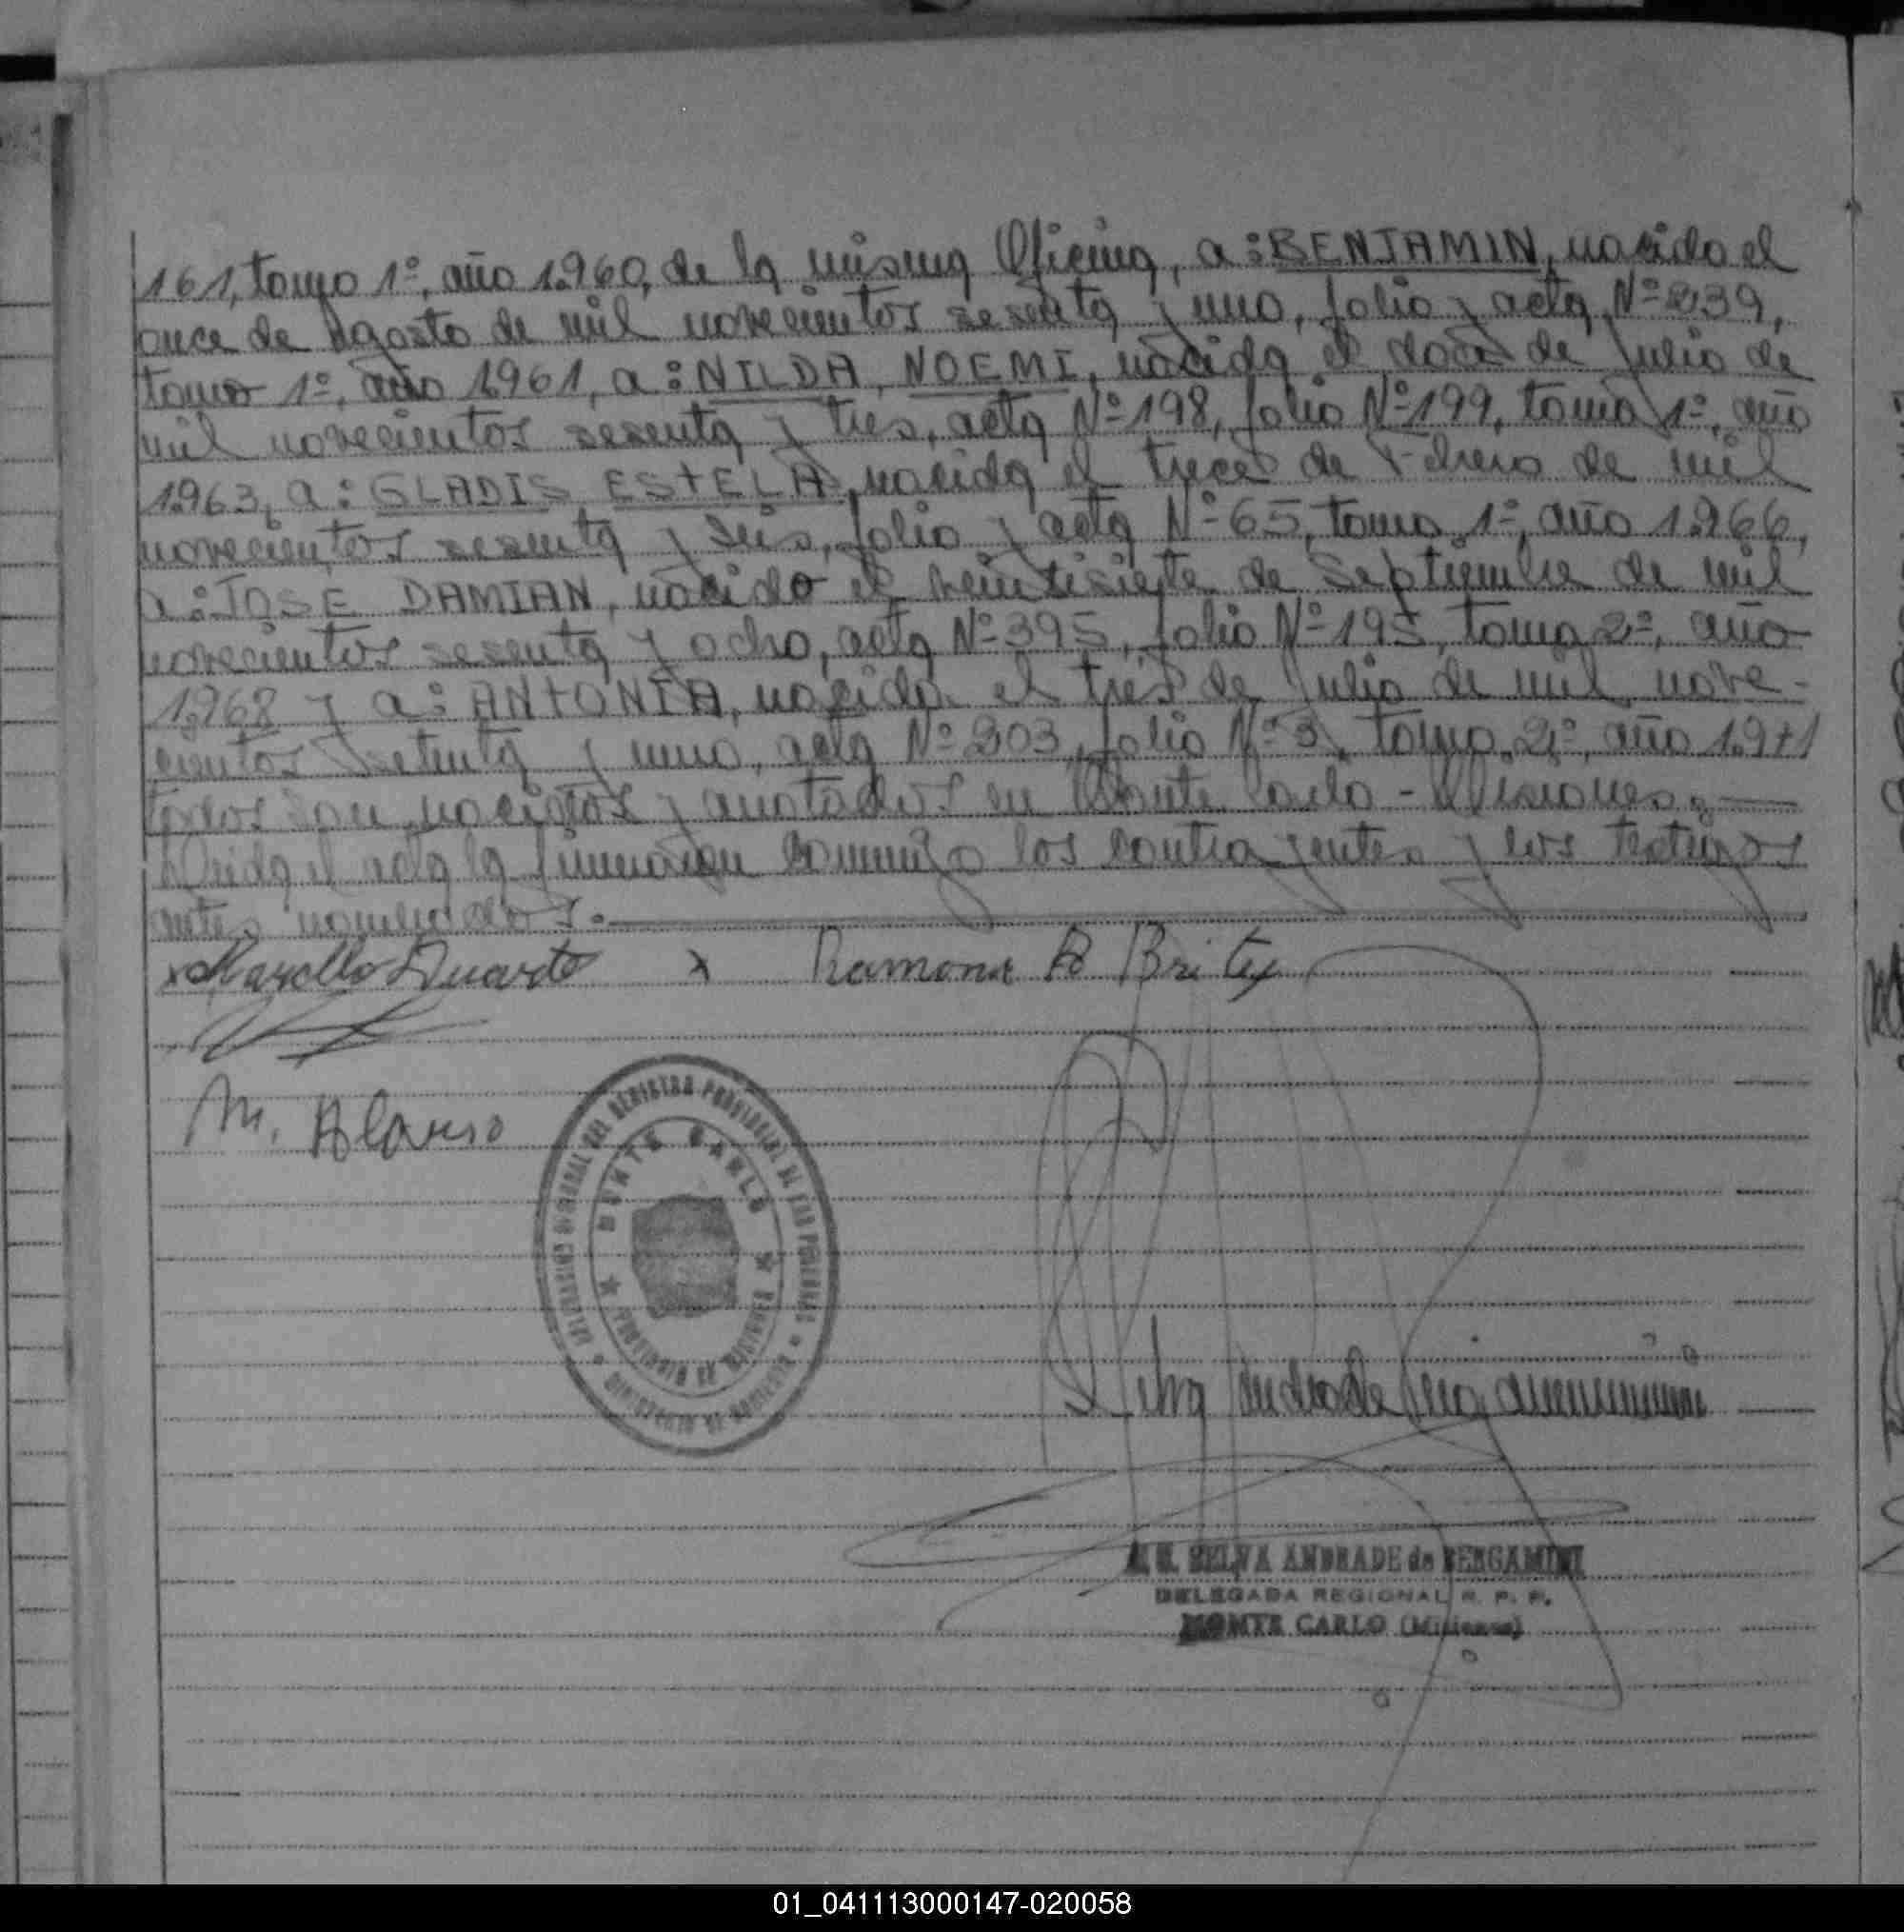 161, tomo 1º, año 1.960, de la misma Oficina, a: BENJAMIN, nacido el
once de agosto de mil novecientos sesenta y uno, folio y acta Nº 239,
tomo 1º, año 1.961, a: NILDA NOEMI, nacida el doce de Julio de
mil novecientos sesenta y tres, acta Nº 198, folio Nº 199, tomo 1º, año
1.963, a: GLADIS ESTELA, nacida el trece de Febrero de mil
novecientos sesenta y seis, folio y acta Nº 65, tomo 1º, año 1.966,
a: JOSE DAMIAN, nacido el veintisiete de Septiembre de mil
novecientos sesenta y ocho, acta Nº 395, folio Nº 195, tomo 2º, año
1.968 y a: ANTONIA, nacida el tres de Julio de mil nove-
cientos setenta y uno, acta Nº 303, folio Nº 3, tomo 2º, año 1.971
todos son nacidos y anotados en Monte Carlo - Misiones.
Leida el acta la firmaron conmigo los contrayentes y los testigos
antes nombrados.
x Marcello Duarte x Ramona B Britez
M. Alonso
DELEGACION REGIONAL DEL REGISTRO PROVINCIAL DE LAS PERSONAS
MONTE CARLO
PROVINCIA DE MISIONES
MINISTERIO DE GOBIERNO
Selva Andrade
SELVA ANDRADE de BERGAMINI
DELEGADA REGIONAL R. P. P.
MONTE CARLO (Misiones)
01_041113000147-020058